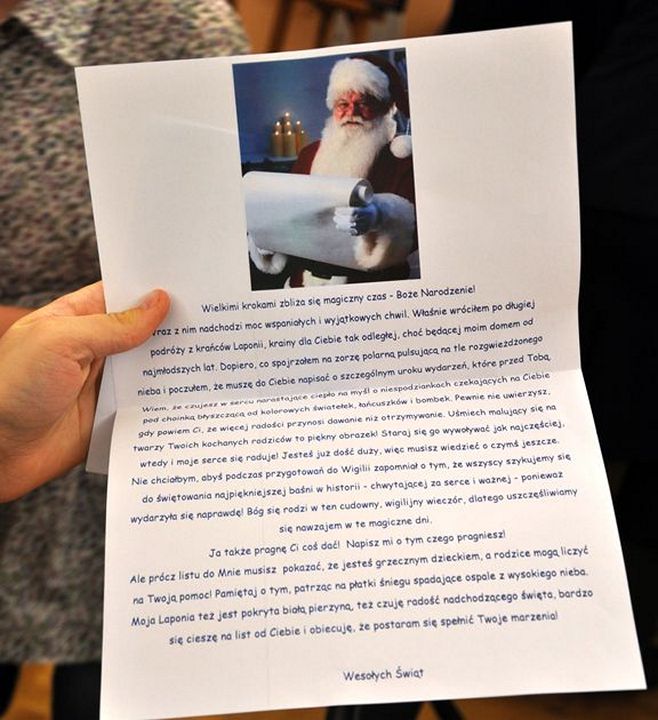 Wielkimi krokami zbliża się magiczny czas - Boże Narodzenie!
wraz z nim nadchodzi moc wspaniałych i wyjątkowych chwil. Właśnie wróciłem po długiej
podróży z krańców Laponii, krainy dla Ciebie tak odległej, choć będącej moim domem od
najmłodszych lat. Dopiero, co spojrzałem na zorzę polarną pulsującą na tle rozgwieżdżonego
nieba i poczułem, że muszę do Ciebie napisać o szczególnym uroku wydarzeń, które przed Tobą.
Wiem, że czujesz w sercu narastające ciepło na myśl o niespodziankach czekających na Ciebie
pod choinką błyszczącą od kolorowych światełek, łańcuszków i bombek. Pewnie nie uwierzysz,
gdy powiem Ci, że więcej radości przynosi dawanie niż otrzymywanie. Uśmiech malujący się na
twarzy Twoich kochanych rodziców to piękny obrazek! Staraj się go wywoływać jak najczęściej,
wtedy i moje serce się raduje! Jesteś już dość duży, więc musisz wiedzieć o czymś jeszcze.
Nie chciałbym, abyś podczas przygotowań do Wigilii zapomniał o tym, że wszyscy szykujemy się
do świętowania najpiękniejszej baśni w historii - chwytającej za serce i ważnej - ponieważ
wydarzyła się naprawdę! Bóg się rodzi w ten cudowny, wigilijny wieczór, dlatego uszczęśliwiamy
się nawzajem w te magiczne dni.
Ja także pragnę Ci coś dać! Napisz mi o tym czego pragniesz!
Ale prócz listu do Mnie musisz pokazać, że jesteś grzecznym dzieckiem, a rodzice mogą liczyć
na Twoją pomoc! Pamiętaj o tym, patrząc na płatki śniegu spadające ospale z wysokiego nieba.
Moja Laponia też jest pokryta białą pierzyną, też czuję radość nadchodzącego święta, bardzo
się cieszę na list od Ciebie i obiecuję, że postaram się spełnić Twoje marzenia!
Wesołych Świąt